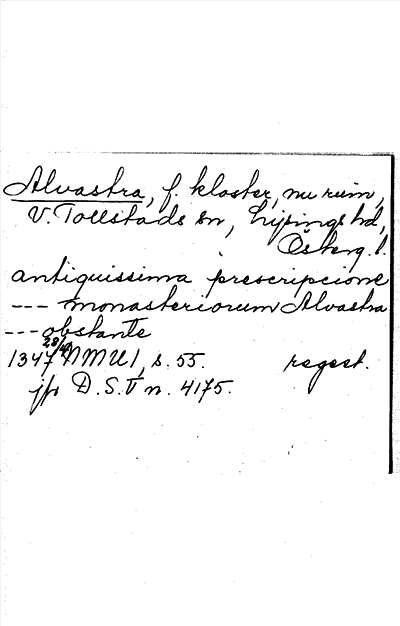 Alvastra, f. kloster, nu ruin,
V. Tollstads sn, Lysings hd,
Österg. l.
antiquissima prescripcione
--- monasteriorum Alvastra
--- obstante
1347 28/4 NMU 1, s. 55. regest.
jfr D.S. V n. 4175.